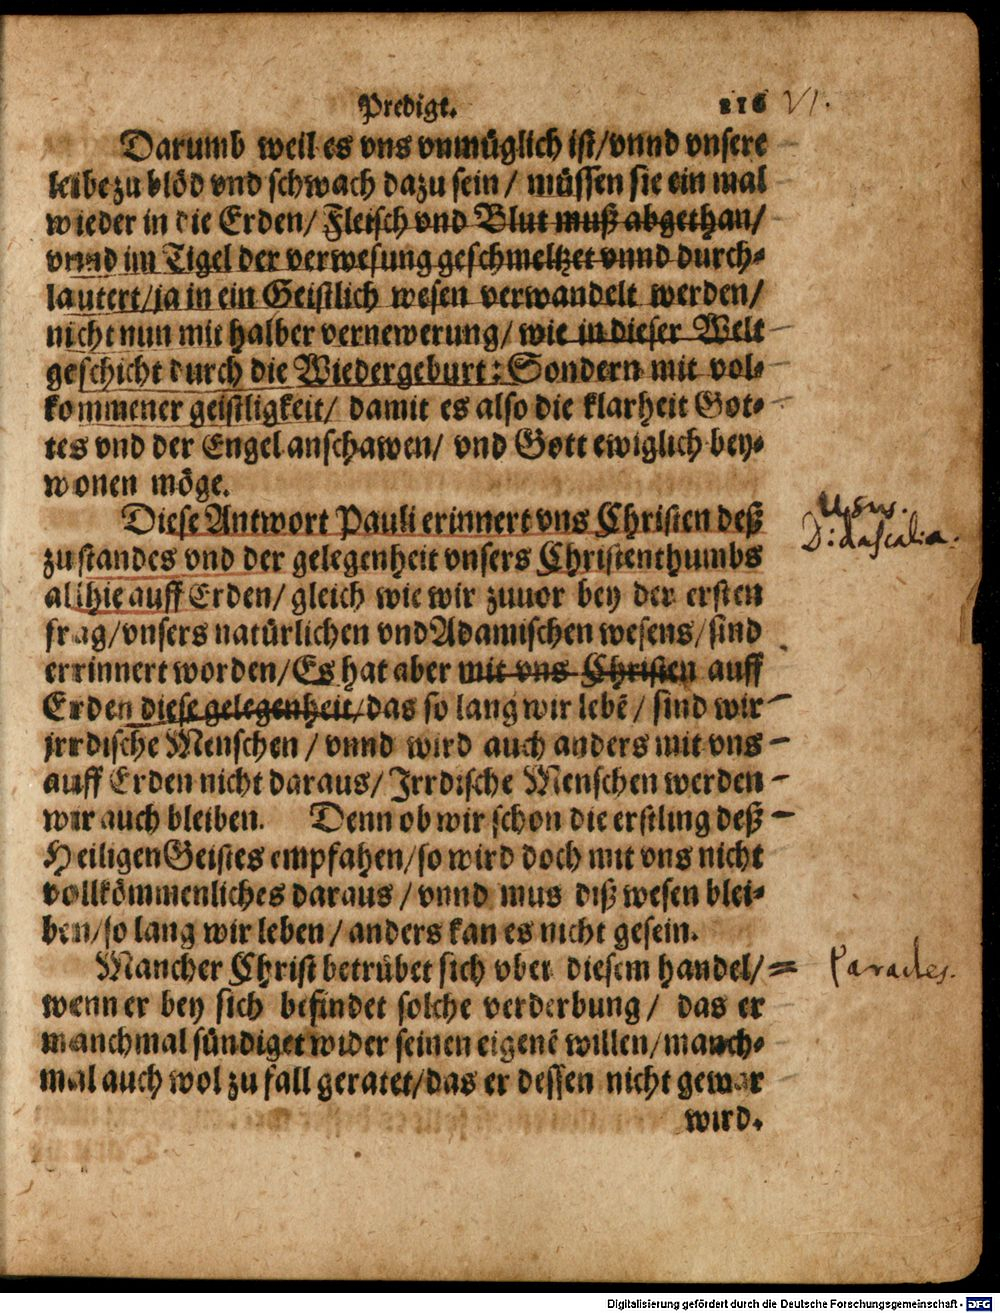 Predigt. 216 VI.
Darumb weil es vns vnmüglich ist/vnnd vnsere
leibe zu blöd vnd schwach dazu sein / müssen sie ein mal
wieder in die Erden/ Fleisch vnd Blut muß abgethan/
vnnd im Tigel der verwesung geschmeltzet vnnd durch-
lautert/ja in ein Geistlich wesen verwandelt werden/
nicht nun mit halber vernewerung/ wie in dieser Welt
geschicht durch die Wiedergeburt: Sondern mit vol-
kommener geistligkeit/ damit es also die klarheit Got-
tes vnd der Engel anschawen/ vnd Gott ewiglich bey-
wonen möge.
Diese Antwort Pauli erinnert vns Christen deß
zustandes vnd der gelegenheit vnsers Christenthumbs
allhie auff Erden/ gleich wie wir zuuor bey der ersten
frag/vnsers natürlichen vnd Adamischen wesens/sind
errinnert worden/Es hat aber mit vns Christen auff
Erden diese gelegenheit/das so lang wir lebē/ sind wir
jrrdische Menschen / vnnd wird auch anders mit vns
auff Erden nicht daraus/ Irrdische Menschen werden
wir auch bleiben. Denn ob wir schon die erstling deß
Heiligen Geistes empfahen/so wird doch mit vns nicht
vollkömmenliches daraus / vnnd mus diß wesen blei-
ben/so lang wir leben / anders kan es nicht gesein.
Mancher Christ betrübet sich vber diesem handel/
wenn er bey sich befindet solche verderbung / das er
manchmal sündiget wider seinen eigenē willen/manch-
mal auch wol zu fall geratet/das er dessen nicht gewar
wird.
Usus.
Didascalia.
Paracles.
Digitalisierung gefördert durch die Deutsche Forschungsgemeinschaft - DFG